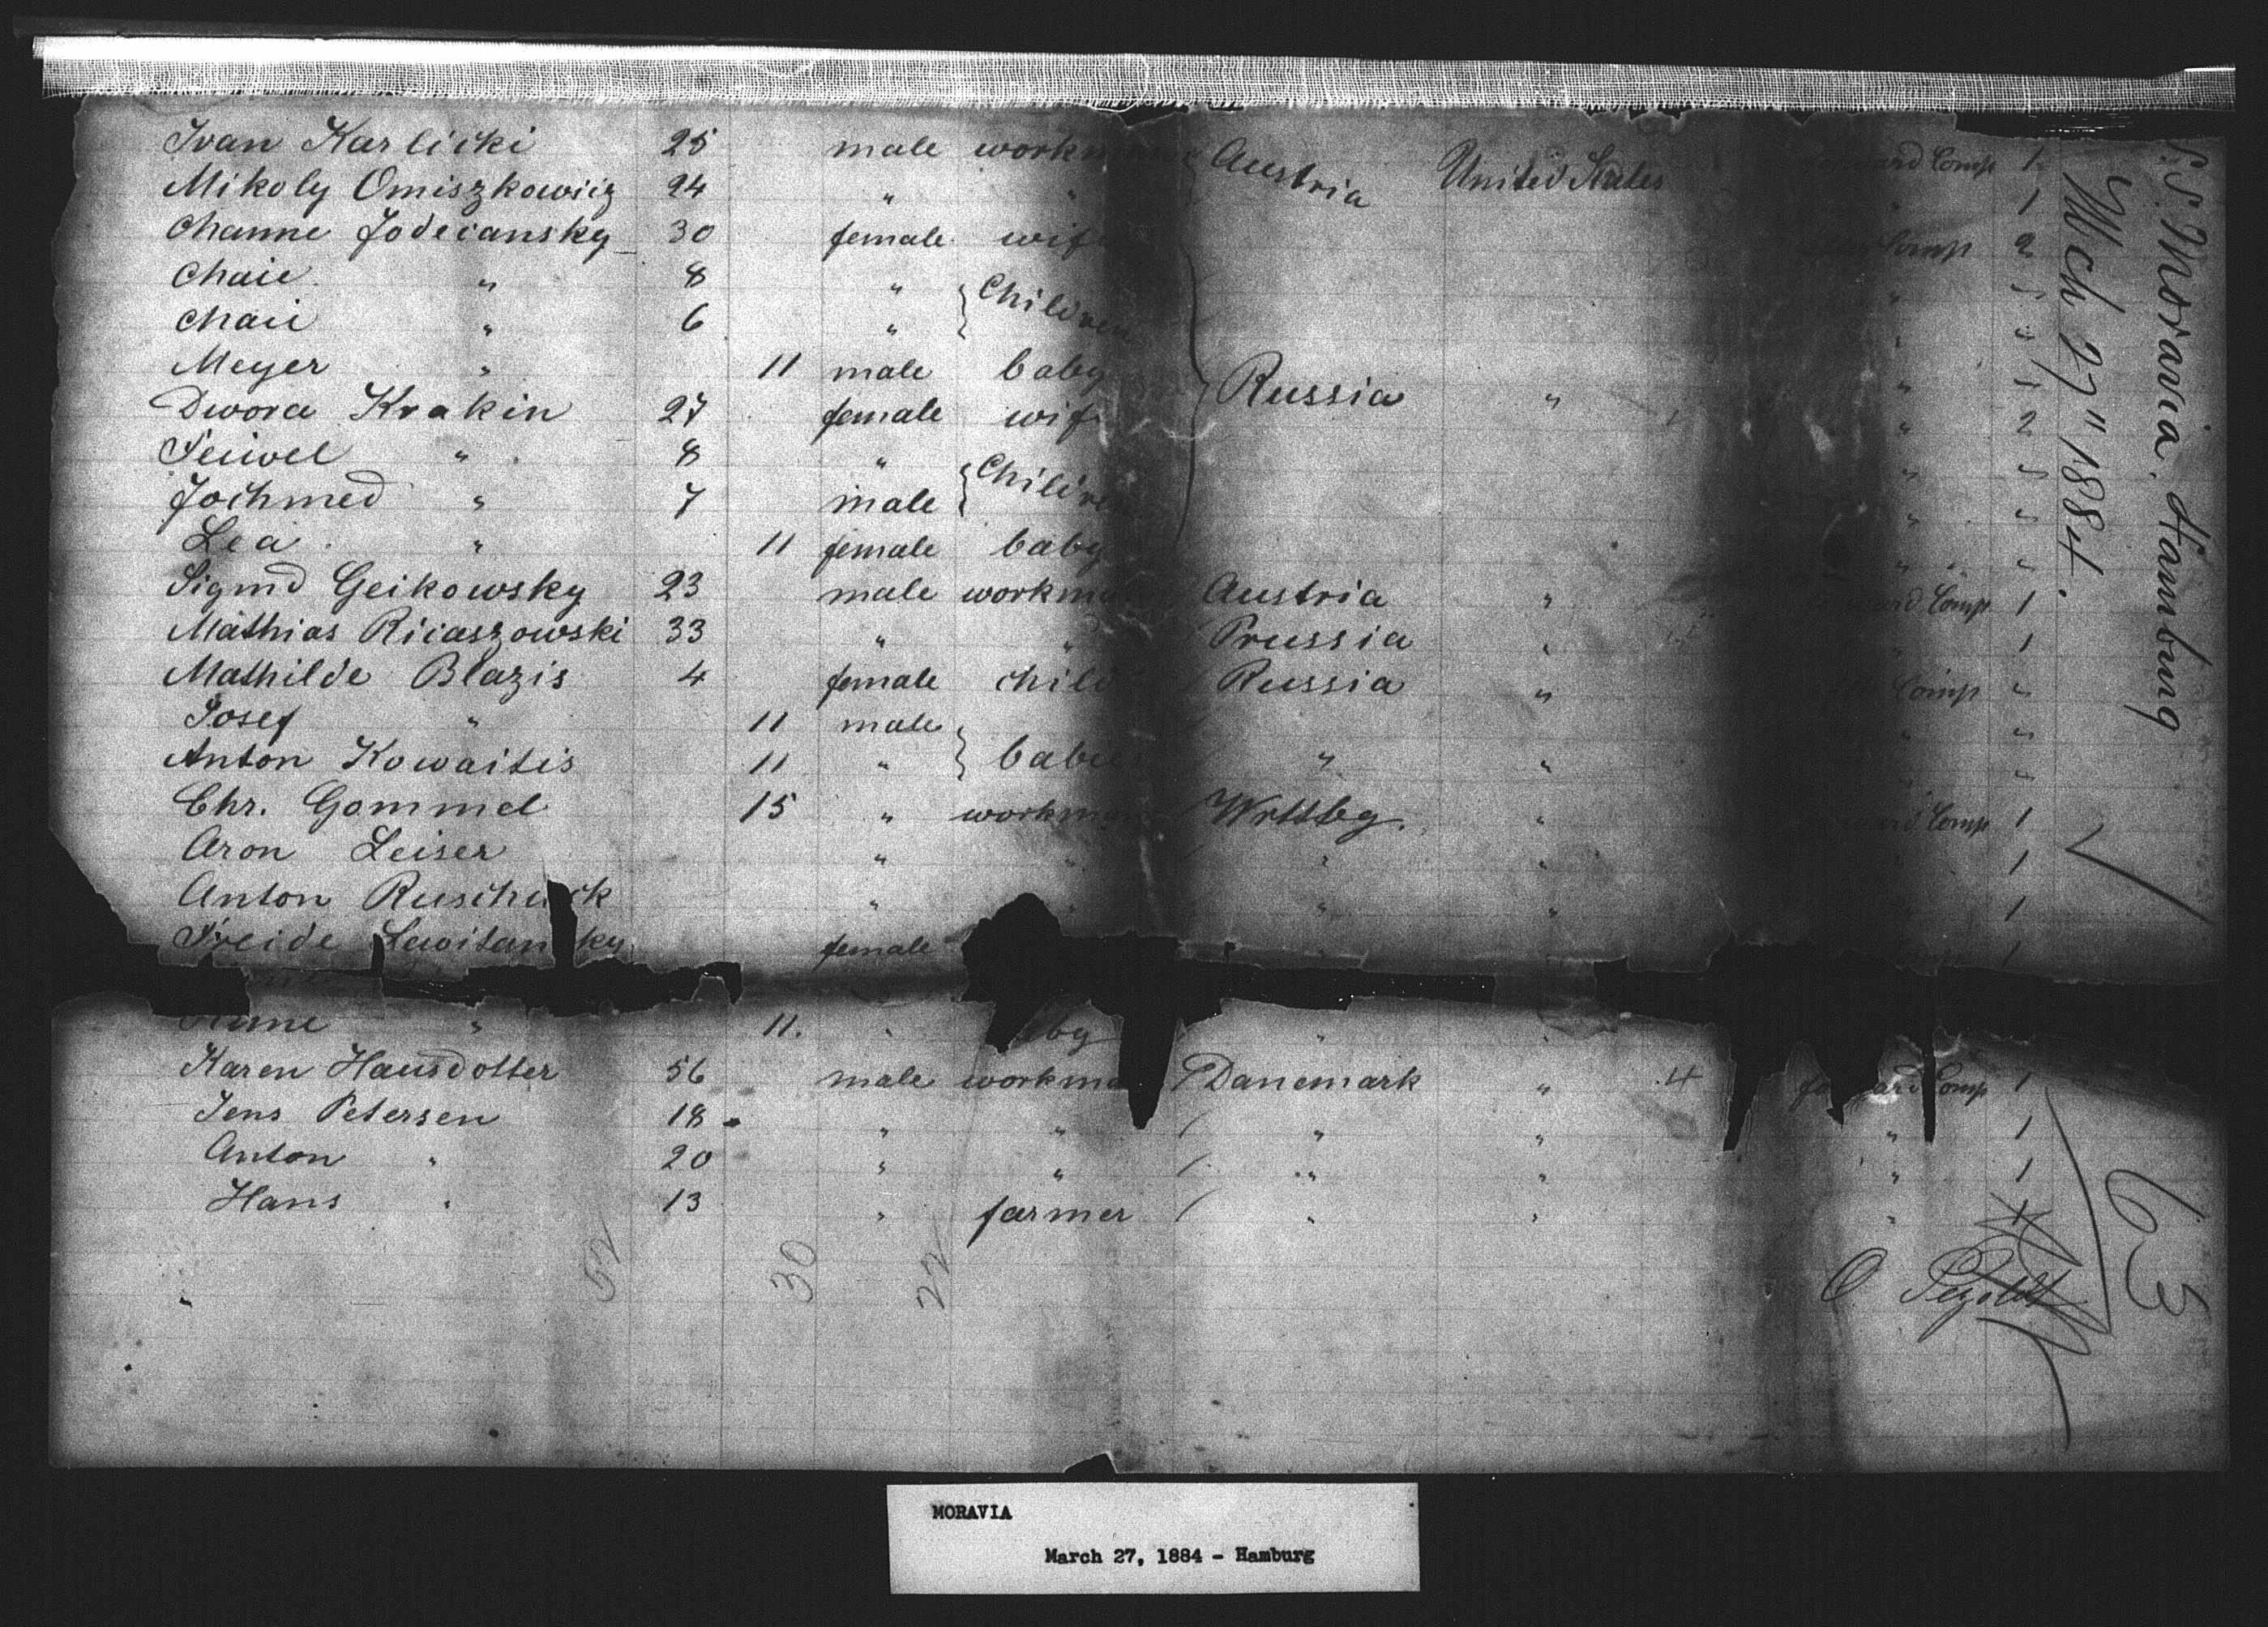 Ivan Karlicki 25 male workman Austria United States forward Comp 1
Mikoly Omiszkowiig 24 " " " 1
Channe Jodeiansky 30 female wife Comp 2
Chaie " 8 " Children "
Chaii " 6 "
Meyer " 11 male baby Russia " "
Dwora Krakin 27 female wife " 2
Feiwel " 8 " Children "
Jochmed " 7 male "
Lea " 11 female baby " "
Sigmd Geikowsky 23 male workman Austria " Comp 1
Mathias Riiaszowski 33 " " Prussia " " 1
Mathilde Blazis 4 female child Russia " Comp "
Josef " 11 male " "
Anton Kowaitis 11 " babies " " "
Chr. Gommel 15 " workman Wrttbg. " Comp 1
Aron Leiser " " " " 1
Anton Ruschuck " " " " 1
Freide Lewitansky female " " Comp 1
" 11. " " "
Karen Hansdotter 56 male workman Danemark " 4 forward Comp 1
Jens Petersen 18 " " " " " 1
Anton " 20 " " " " " 1
Hans " 13 " farmer " " "
52 30 22
O Pezoldt
S.S. Moravia. Hamburg
Mch 27" 1884.
63
MORAVIA
March 27, 1884 - Hamburg